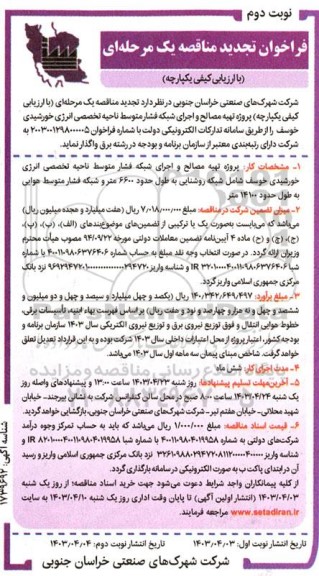 نوبت دوم
فراخوان تجدید مناقصه یک مرحله‌ای
(با ارزیابی کیفی یکپارچه)
شرکت شهرک‌های صنعتی خراسان جنوبی در نظر دارد تجدید مناقصه یک مرحله‌ای (با ارزیابی
کیفی یکپارچه) پروژه تهیه مصالح و اجرای شبکه فشار متوسط ناحیه تخصصی انرژی خورشیدی
خوسف را از طریق سامانه تدارکات الکترونیکی دولت با شماره فراخوان ۲۰۰۳۰۰۱۲۹۸۰۰۰۰۰۵ به
شرکت دارای رتبه‌بندی معتبر از سازمان برنامه و بودجه در رشته برق واگذار نماید.
۱- مشخصات کار: پروژه تهیه مصالح و اجرای شبکه فشار متوسط ناحیه تخصصی انرژی
خورشیدی خوسف شامل شبکه روشنایی به طول حدود ۶۶۰۰ متر و شبکه فشار متوسط هوایی
به طول حدود ۱۴۱۰۰ متر
۲- میزان تضمین شرکت در مناقصه: مبلغ ۷/۰۱۸/۰۰۰/۰۰۰ ریال (هفت میلیارد و هجده میلیون ریال)
می‌باشد که می‌بایست به‌صورت یک یا ترکیبی از تضمین‌های موضوع بندهای (الف)، (ب)، (پ)،
(ج)، (چ) و (ح) ماده ۴ آیین‌نامه تضمین معاملات دولتی مورخه ۹۴/۰۹/۲۲ مصوب هیأت محترم
وزیران ارائه گردد. در صورت انتخاب وجه نقد مبلغ به حساب شماره ۴۰۰۱۱۰۹۸۰۶۳۷۶۴۰۶ با شماره
مرکزی جمهوری اسلامی واریز گردد.
۳- مبلغ برآورد: ۱۴۰/۳۴۲/۶۴۹/۴۹۷ ریال (یکصد و چهل میلیارد و سیصد و چهل و دو میلیون و
ششصد و چهل و نه هزار و چهارصد و نود و هفت ریال)، بر اساس فهرست بهاء ابنیه، تأسیسات برقی،
خطوط هوایی انتقال و فوق توزیع نیروی برق و توزیع نیروی الکتریکی سال ۱۴۰۳ سازمان برنامه و
بودجه کشور، اعتبار پروژه از محل اعتبارات داخلی سال ۱۴۰۳ شرکت بوده و به این قرارداد تعدیل تعلق
خواهد گرفت. شاخص مبنای پیمان سه ماهه اول سال ۱۴۰۳ می‌باشد.
۴- مدت اجرای کار: شش ماه
۵- آخرین مهلت تسلیم پیشنهادها: روز شنبه ۱۴۰۳/۰۴/۲۳ ساعت ۱۳:۰۰ و پیشنهادهای واصله روز
یک شنبه ۱۴۰۳/۰۴/۲۴ ساعت ۸:۰۰ صبح در محل سالن کنفرانس شرکت به نشانی بیرجند- خیابان
شهید محلاتی- خیابان هفتم تیر- شرکت شهرک‌های صنعتی خراسان جنوبی، بازگشایی خواهد گردید.
۶- قیمت اسناد مناقصه: مبلغ ۱/۰۰۰/۰۰۰ ریال می‌باشد که باید به حساب تمرکز وجوه درآمد
شرکت‌های دولتی به شماره ۴۰۰۱۱۰۹۸۰۴۰۱۹۹۵۸ با شماره شبا
و شناسه واریز نزد بانک مرکزی جمهوری اسلامی واریز و رسید
آن در ابتدای پاکت ب به صورت الکترونیکی در سامانه بارگذاری گردد.
از کلیه پیمانکاران واجد شرایط دعوت می‌شود جهت خرید اسناد مناقصه؛ از روز یک شنبه
۱۴۰۳/۰۴/۰۳ (انتشار اولین آگهی) تا پایان وقت اداری روز یک شنبه ۱۴۰۳/۰۴/۱۰ به سایت
www.setadiran.ir مراجعه فرمایند.
تاریخ انتشار نوبت اول: ۱۴۰۳/۰۴/۰۳ تاریخ انتشار نوبت دوم: ۱۴۰۳/۰۴/۰۴
شرکت شهرک‌های صنعتی خراسان جنوبی
شناسه آگهی: ۱۷۳۹۶۹۳